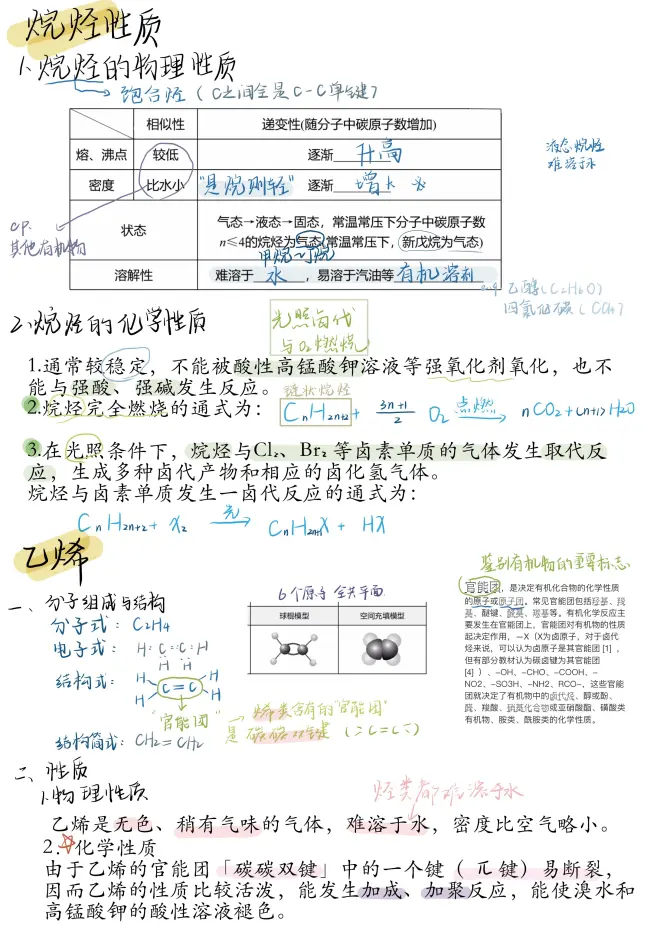 烷烃性质
1.烷烃的物理性质
饱合烃（C之间全是C-C单键）
相似性 递变性(随分子中碳原子数增加)
熔、沸点 较低 逐渐 升高
液态烷烃
难溶于水
密度 比水小 "是烷则轻" 逐渐 增大
其他有机物
状态 气态→液态→固态，常温常压下分子中碳原子数
n≤4的烷烃为气态(常温常压下，新戊烷为气态)
甲烷~丁烷
溶解性 难溶于 水 ，易溶于汽油等 有机溶剂
乙醇(C2H6O)
四氯化碳(CCl4)
2.烷烃的化学性质
光照卤代
与O2燃烧
1.通常较稳定，不能被酸性高锰酸钾溶液等强氧化剂氧化，也不
能与强酸、强碱发生反应。
链状烷烃
2.烷烃完全燃烧的通式为： CnH2n+2 + 3n+1/2 O2 点燃→ nCO2+(n+1)H2O
3.在光照条件下，烷烃与Cl₂、Br₂ 等卤素单质的气体发生取代反
应，生成多种卤代产物和相应的卤化氢气体。
烷烃与卤素单质发生一卤代反应的通式为：
CnH2n+2 + X2 光→ CnH2n+1X + HX
乙烯
一、分子组成与结构
分子式：C2H4
电子式：H:C::C:H
H H
结构式：H H
C=C
H H
"官能团"
结构简式：CH2=CH2
6个原子 全共平面
球棍模型 空间充填模型
→ 烯类含有的"官能团"
是 碳碳双键 (>C=C<)
鉴别有机物的重要标志
官能团，是决定有机化合物的化学性质
的原子或原子团。常见官能团包括羟基、羧
基、醚键、醛基、羰基等。有机化学反应主
要发生在官能团上，官能团对有机物的性质
起决定作用，—X（X为卤原子，对于卤代
烃来说，可以认为卤原子是其官能团 [1] ，
但有部分教材认为碳卤键为其官能团
[4] ）、–OH、–CHO、–COOH、–
NO2、–SO3H、–NH2、RCO–，这些官能
团就决定了有机物中的卤代烃、醇或酚、
醛、羧酸、硝基化合物或亚硝酸酯、磺酸类
有机物、胺类、酰胺类的化学性质。
二、性质
1.物理性质
烃类都难溶于水
乙烯是无色、稍有气味的气体，难溶于水，密度比空气略小。
2.☆化学性质
由于乙烯的官能团「碳碳双键」中的一个键（ π键）易断裂，
因而乙烯的性质比较活泼，能发生加成、加聚反应，能使溴水和
高锰酸钾的酸性溶液褪色。